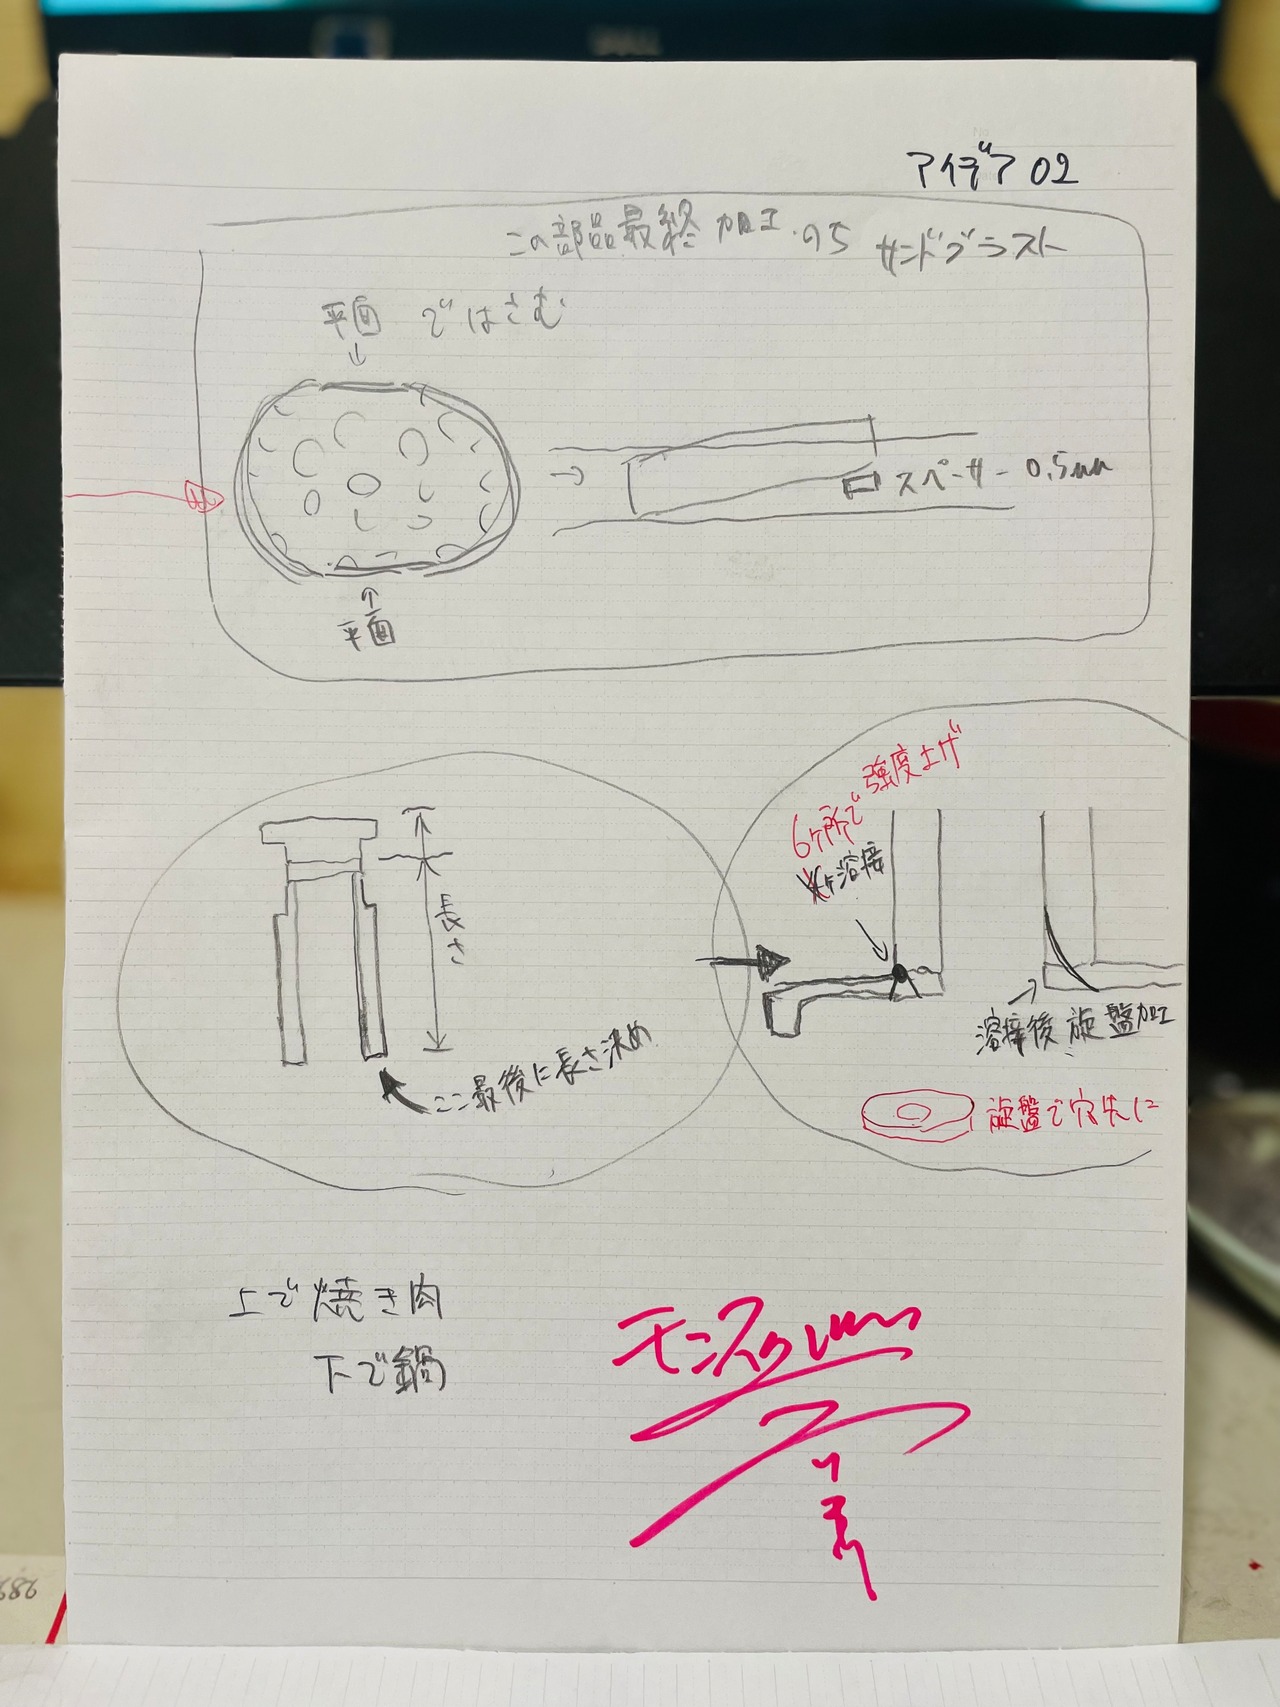 DELL
アイデア 02
この部品最終加工.のち サンドブラスト
平面 ではさむ
スペーサー 0.5mm
平面
6ヶ所で強度上げ
溶接
長さ
ここ最後に長さ決め
溶接後 旋盤加工
旋盤で穴先に
上で焼き肉
下で鍋